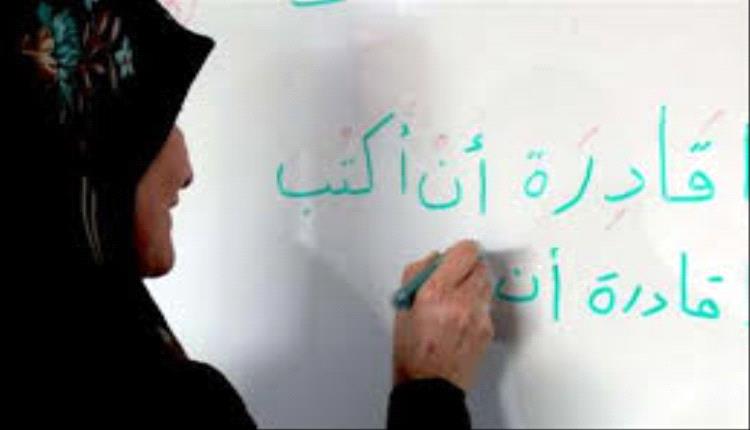 قادرة أن أكتب
قادرة أن